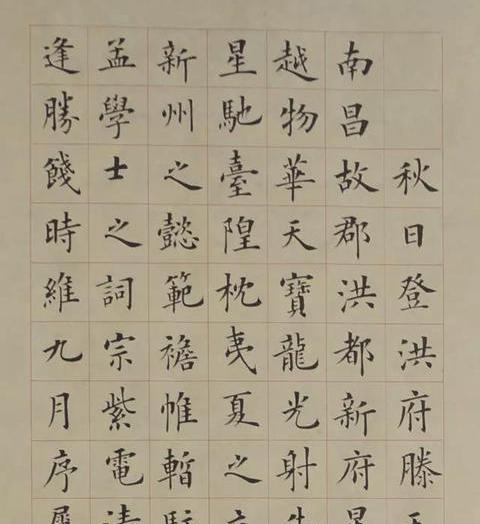 秋日登洪府滕
南昌故郡洪都新府
越物華天寶龍光射
星馳臺隍枕夷夏之
新州之懿範襜帷暫
孟學士之詞宗紫電
逢勝餞時維九月序